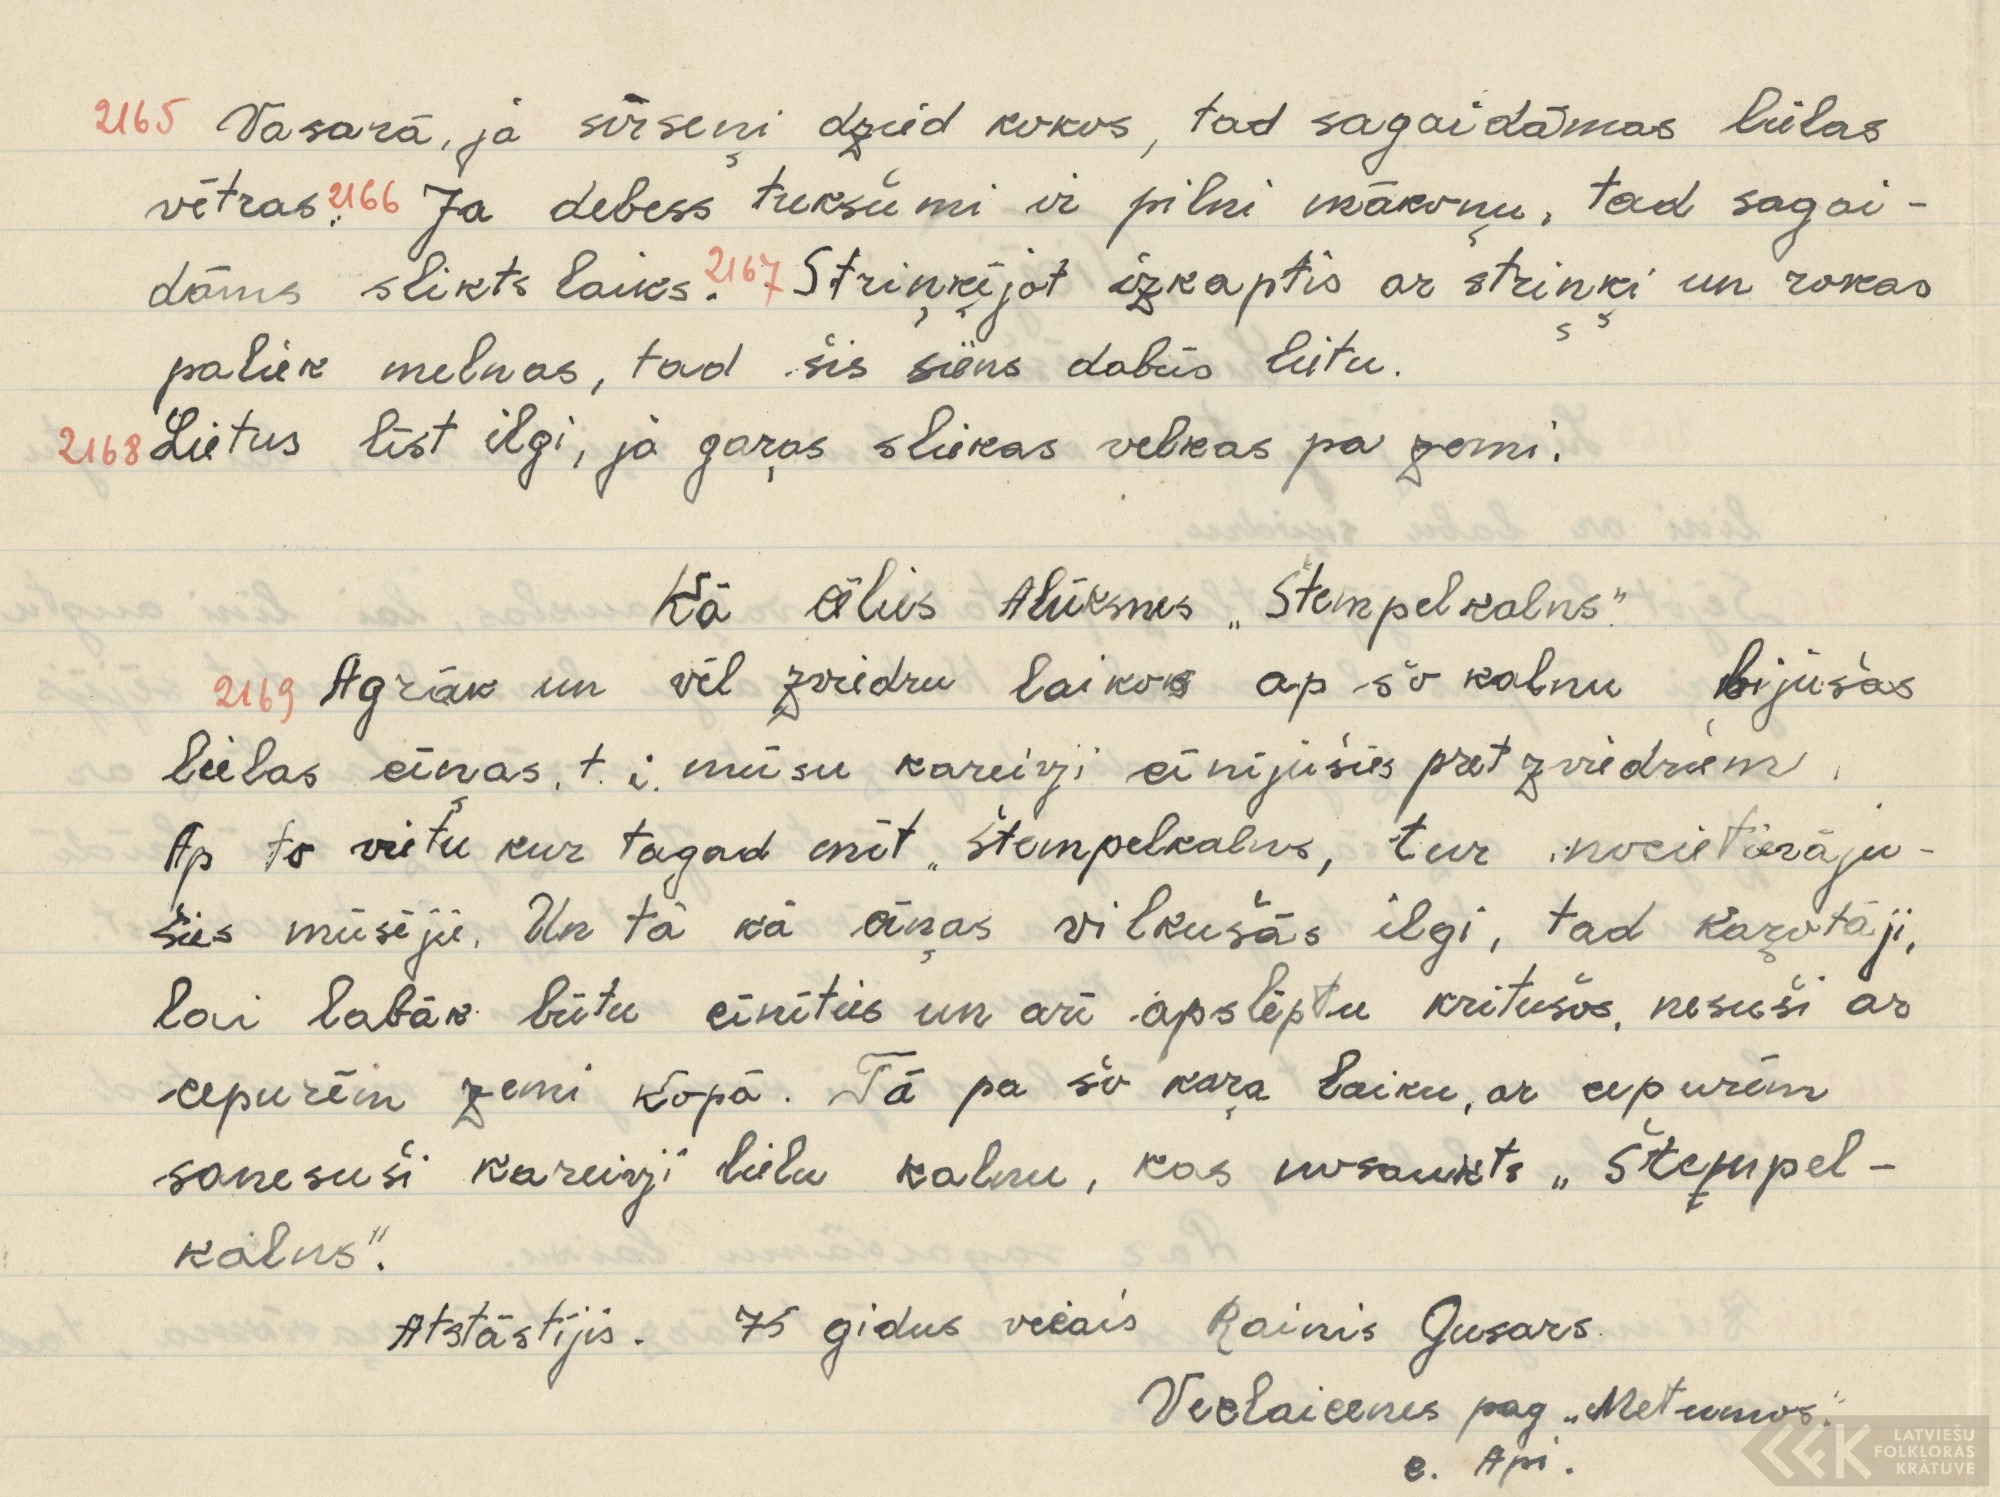 2165 Vasarā, ja sirseņi dzied kokos, tad sagaidāmas lielas
vētras. 2166 Ja debess tukšumi ir pilni mākoņu, tad sagai-
dāms slikts laiks. 2167 Striņķējot izkaptis ar striņķi un rokas
paliek melnas, tad šis siens dabūs lietu.
2168 Lietus līst ilgi, ja gaŗas sliekas velkas pa zemi.
Kā cēlies Alūksnes „Štempelkalns".
2169 Agrāk un vēl zviedru laikos ap šo kalnu bijušas
lielas cīņas, t. i. mūsu kareivji cīnījušies pret zviedriem.
Ap to vietu kur tagad mīt „Štempelkalns, tur nocietināju-
šies mūsējie. Un tā kā cīņas vilkušās ilgi, tad karotāji,
lai labāk būtu cīnīties un arī apslēptu kritušos, nesuši ar
cepurēm zemi kopā. Tā pa šo kaŗa laiku, ar cepurēm
sanesuši kareivji lielu kalnu, kas nosaukts „Štempel-
kalns".
Atstāstījis. 75 gadus vecais Rainis Gusars.
Veclaicenes pag „Metumos."
c. Api.
LATVIEŠU
FOLKLORAS
KRĀTUVE